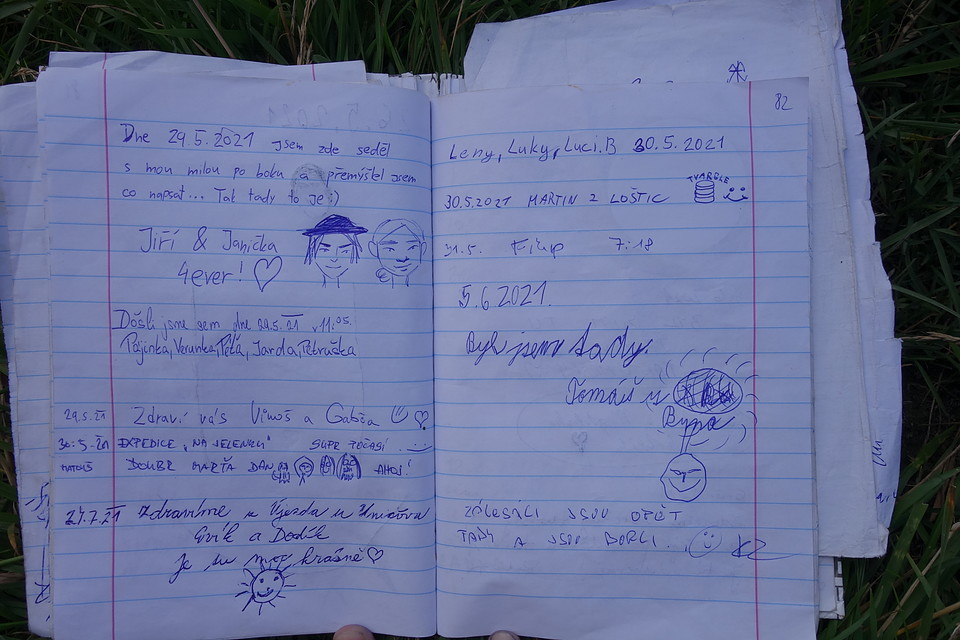 Dne 29.5.2021 jsem zde seděl
s mou milou po boku a přemýšlel jsem
co napsat... Tak tady to je :)
Jiří & Janička
4ever! ♡
Došli jsme sem dne 29.5.21 v 11:05.
Pájinka, Verunka, Péťa, Jarda, Petruška
29.5.21 Zdraví vás Vinoš a Gabča
30.5.21 EXPEDICE „NA JELENKU" SUPR POČASÍ
MATOUŠ DOUBR MARŤA DAN AHOJ!
27.7.21 Zdravíme z Újezda u Uničova
a Dodík
Je tu moc krásně ♡
82
Leny, Luky, Luci.B 30.5.2021
TVARGLE
30.5.2021 MARTIN Z LOŠTIC
31.5. Filip 7:18
5.6 2021.
Byli jsme tady.
Tomáš
ZÁLESÁCI JSOU OPĚT
TADY A JSOU BORCI.